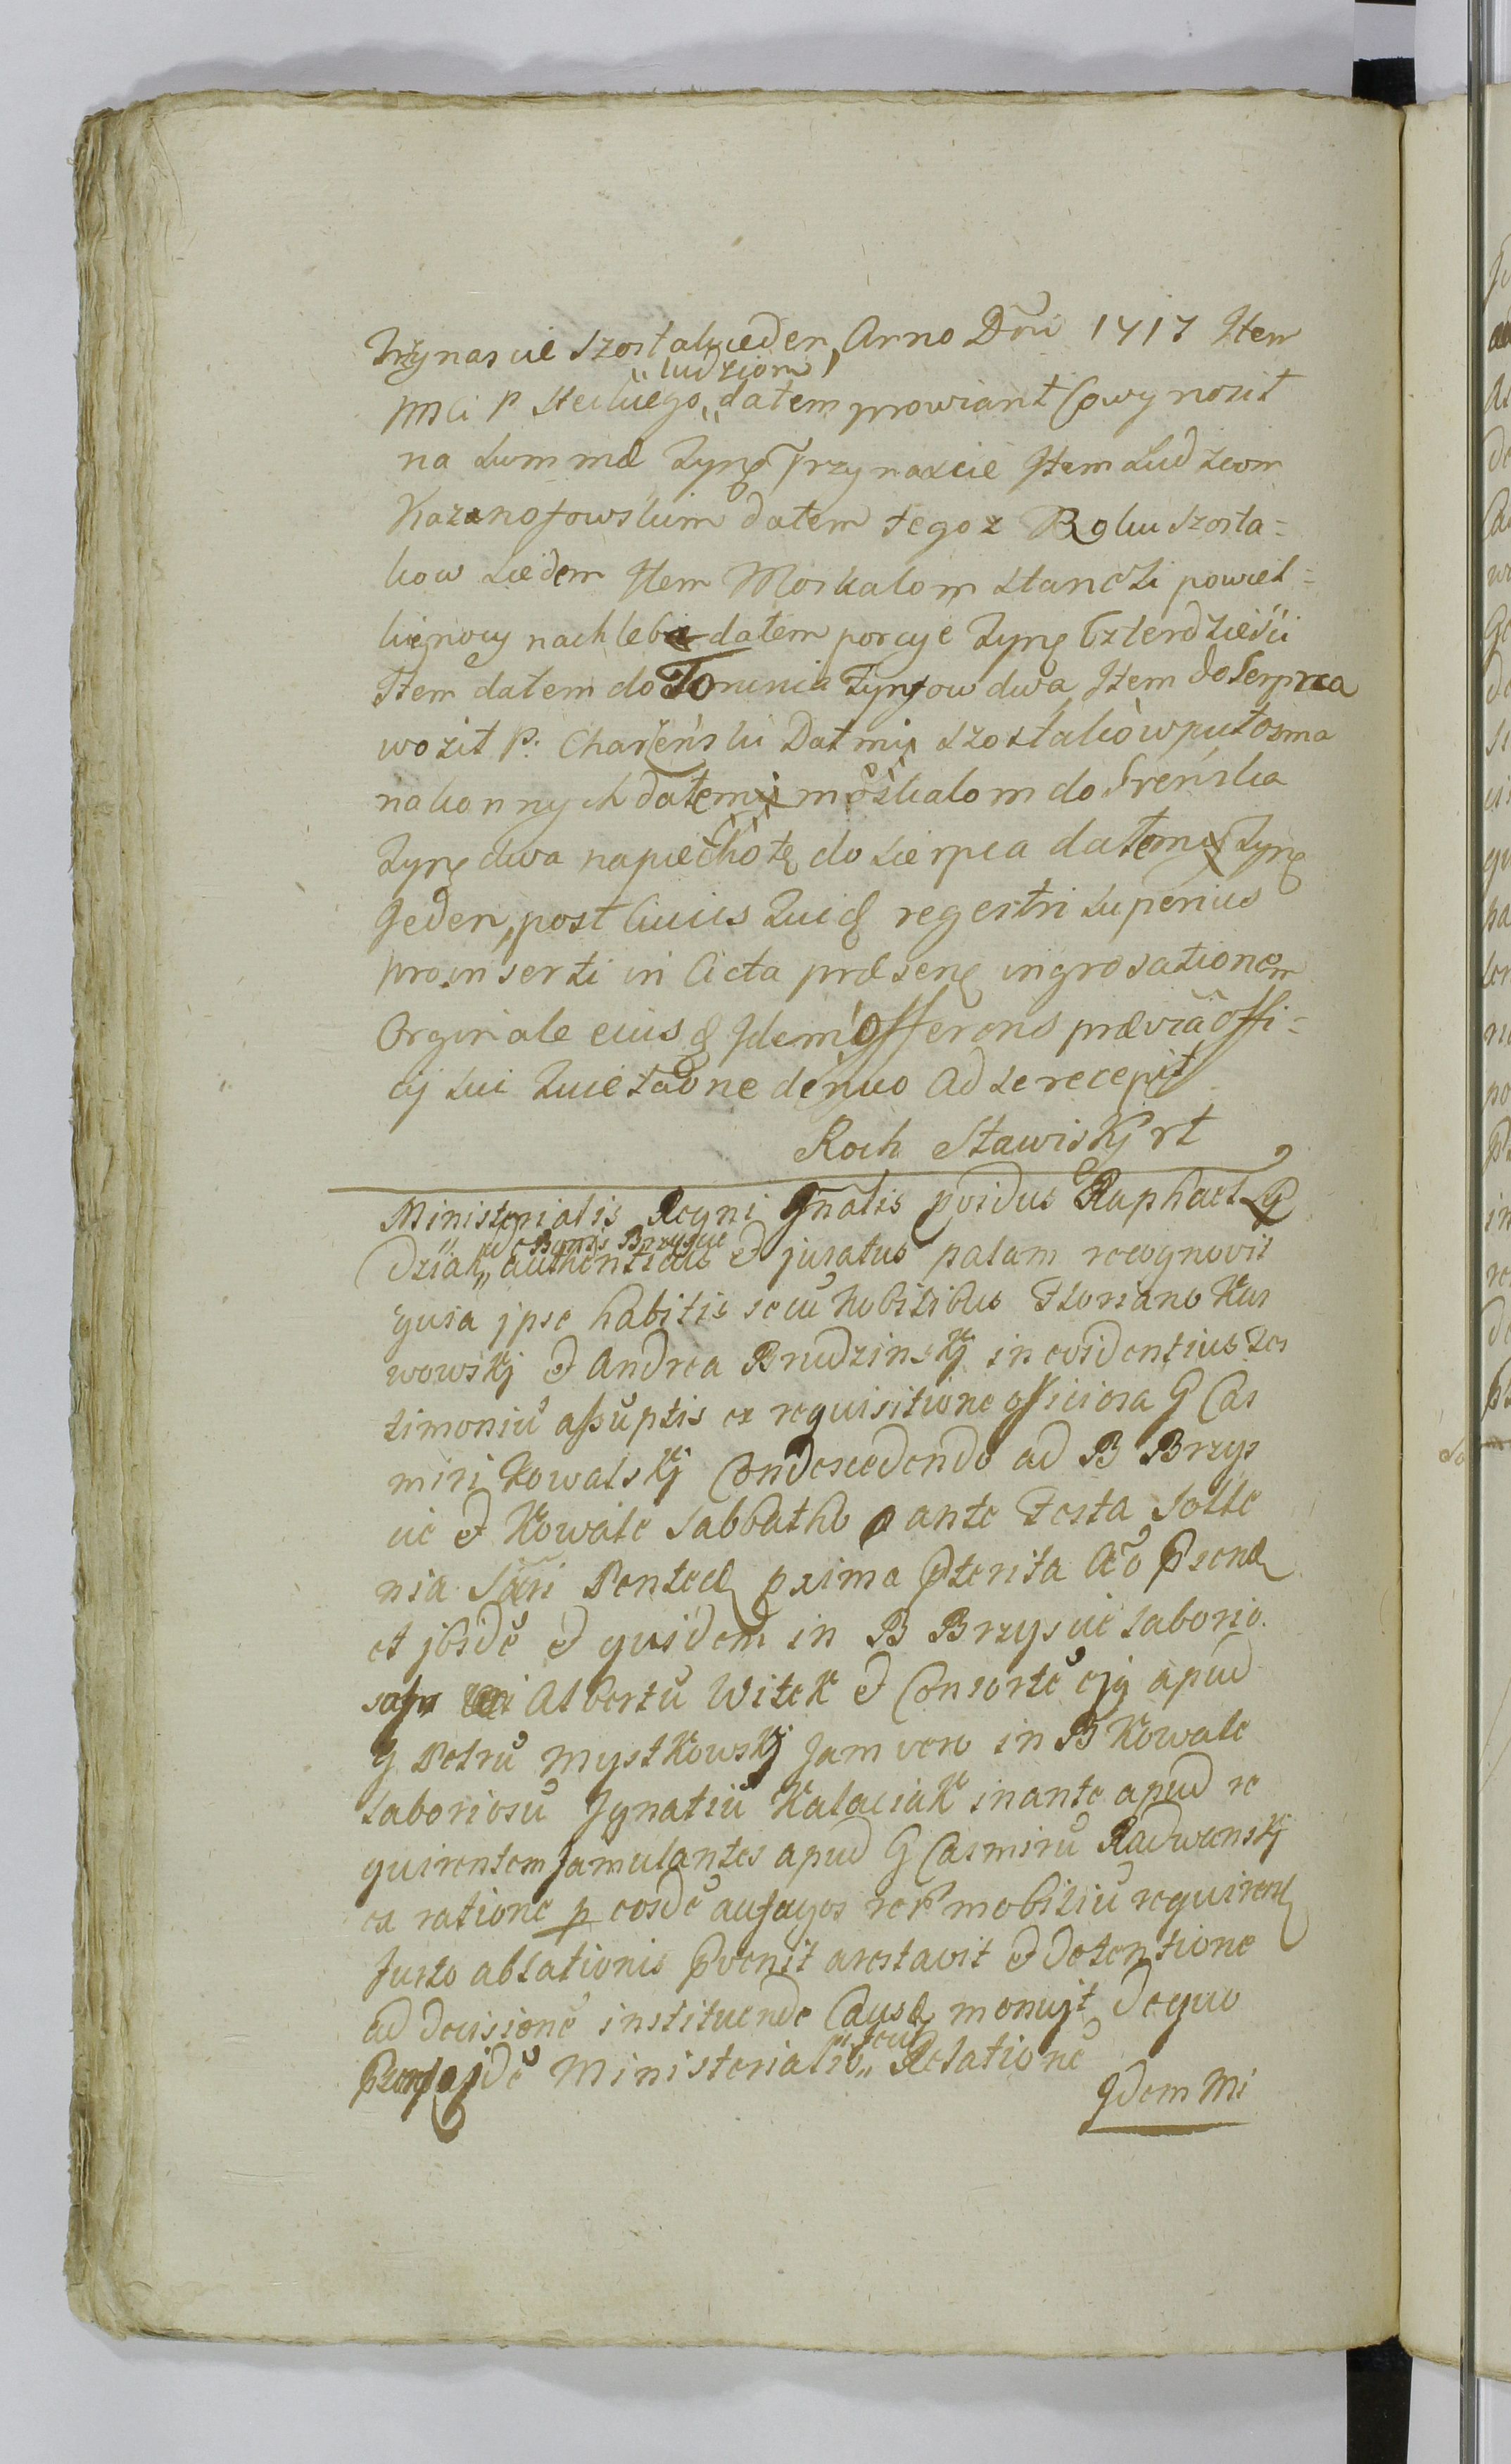 Trzynascie szostak jeden, Anno Dñi 1717 Item
"ludziom"
Jmsci P Steckiego,, datem prowiant Co wynosit
na summæ Tynę Trzynascie Item Ludziom
Kazanofowskim datem tegoz Roku szosta=
kow siedem Item Moskalom stanczi powiel=
kienocy nachleba datem porcye Tynę Czterdziesci
Item datem do Torunia Tynfow dwa, Item do Serpca
wozit P. Chareński Dat mi szostaków pułosma
na konnych datem moskalom do Sreńska
Tynę dwa napiechotę do sierpca datem Tynę
Jeden, post cuius quidę regestri superius
proinserti in Acta præsenę ingrosationem
Orginale eiusq Idem Offerens prævia offi=
cij sui quietãone denuo Ad se recepit
Roch Stawiskj rt
Ministerialis Regni Gnalis pvidus Raphael G
ad Bonis Brzyscie
dziak,, authenticus et juratus palam recognovit
quia jpse habitis secũ Nobilibus Floriano Kur
wowskj et Andrea Brudzinskj in evidentius tes
timoniũ assũptis ex requisitione officiosa G Cas
miri Kowalskj Condescedendo ad B Brzys
cie et Kowale sabbatho ante Festa Solle
nia Sãri Pentecę pxima pterita Aõ psenę
et jbidẽ et quidem in B Brzyscie laborio
Albertũ Witek et Consortẽ ejq apud
G Petrũ Mystkowskj Jam vero in B Kowale
Laboriosũ Jgnatiũ Kalaciak inante apud re
quirentem famulantes apud G Casmirũ Radwanskj
ea ratione p eosdẽ aufugos rer mobiliũ requirenę
furto ablationis pvenit arestavit et detentione
ad decisionẽ instituendę Causę monujt dequo
"fecit
psens jdẽ Ministerialis,, Relationẽ
Jdem Mi